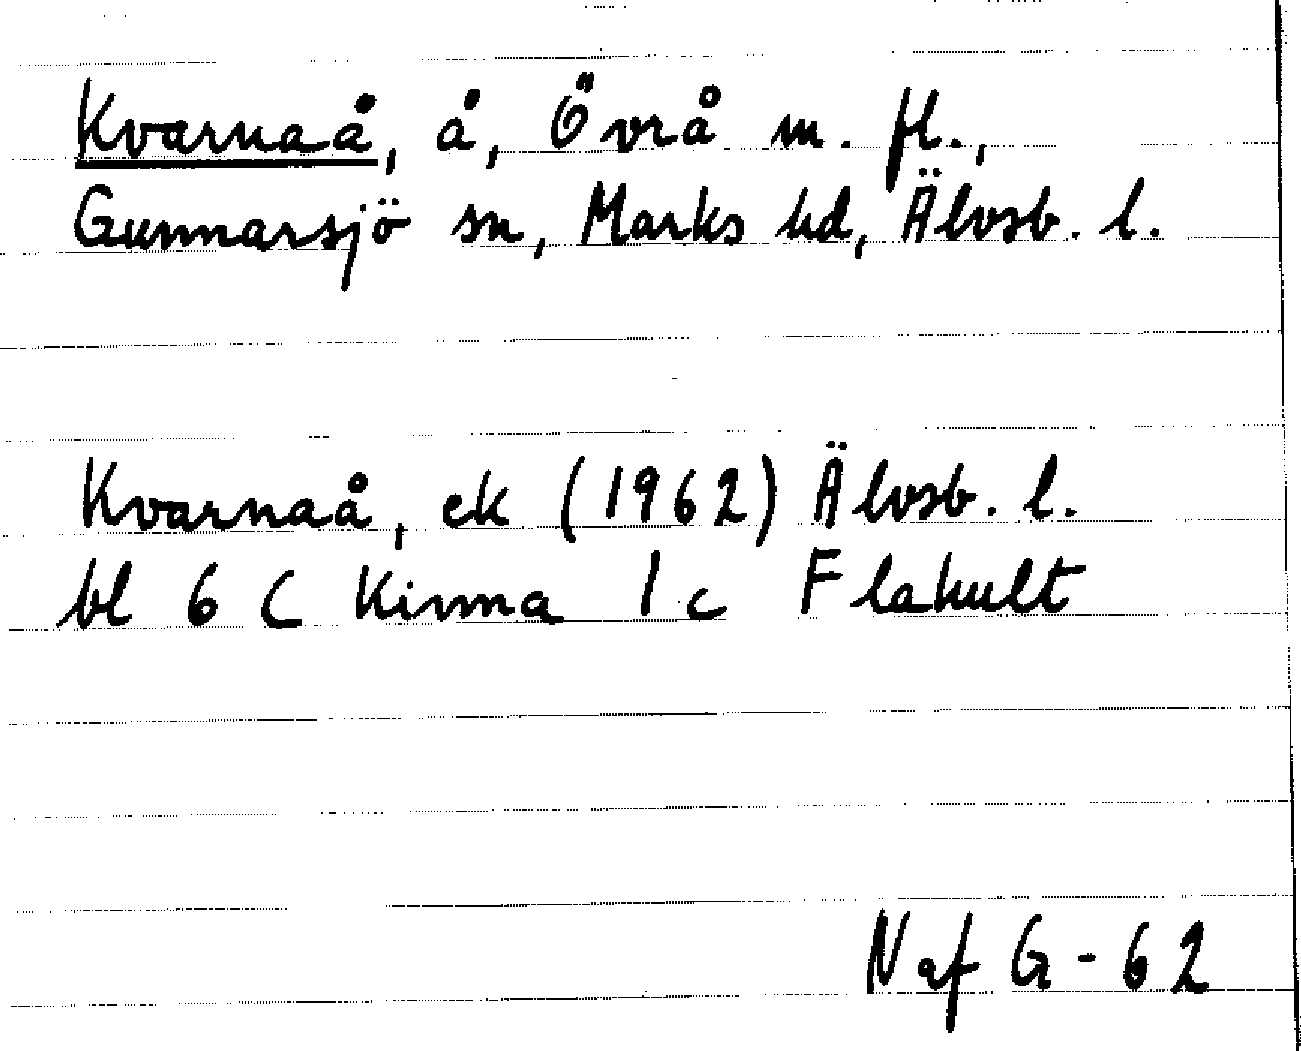 Kvarnaå, å, Övrå m. fl.,
Gunnarsjö sn, Marks hd, Älvsb. l.
Kvarnaå, ek (1962) Älvsb. l.
bl 6 C Kinna 1 c Flahult
Naf G-62